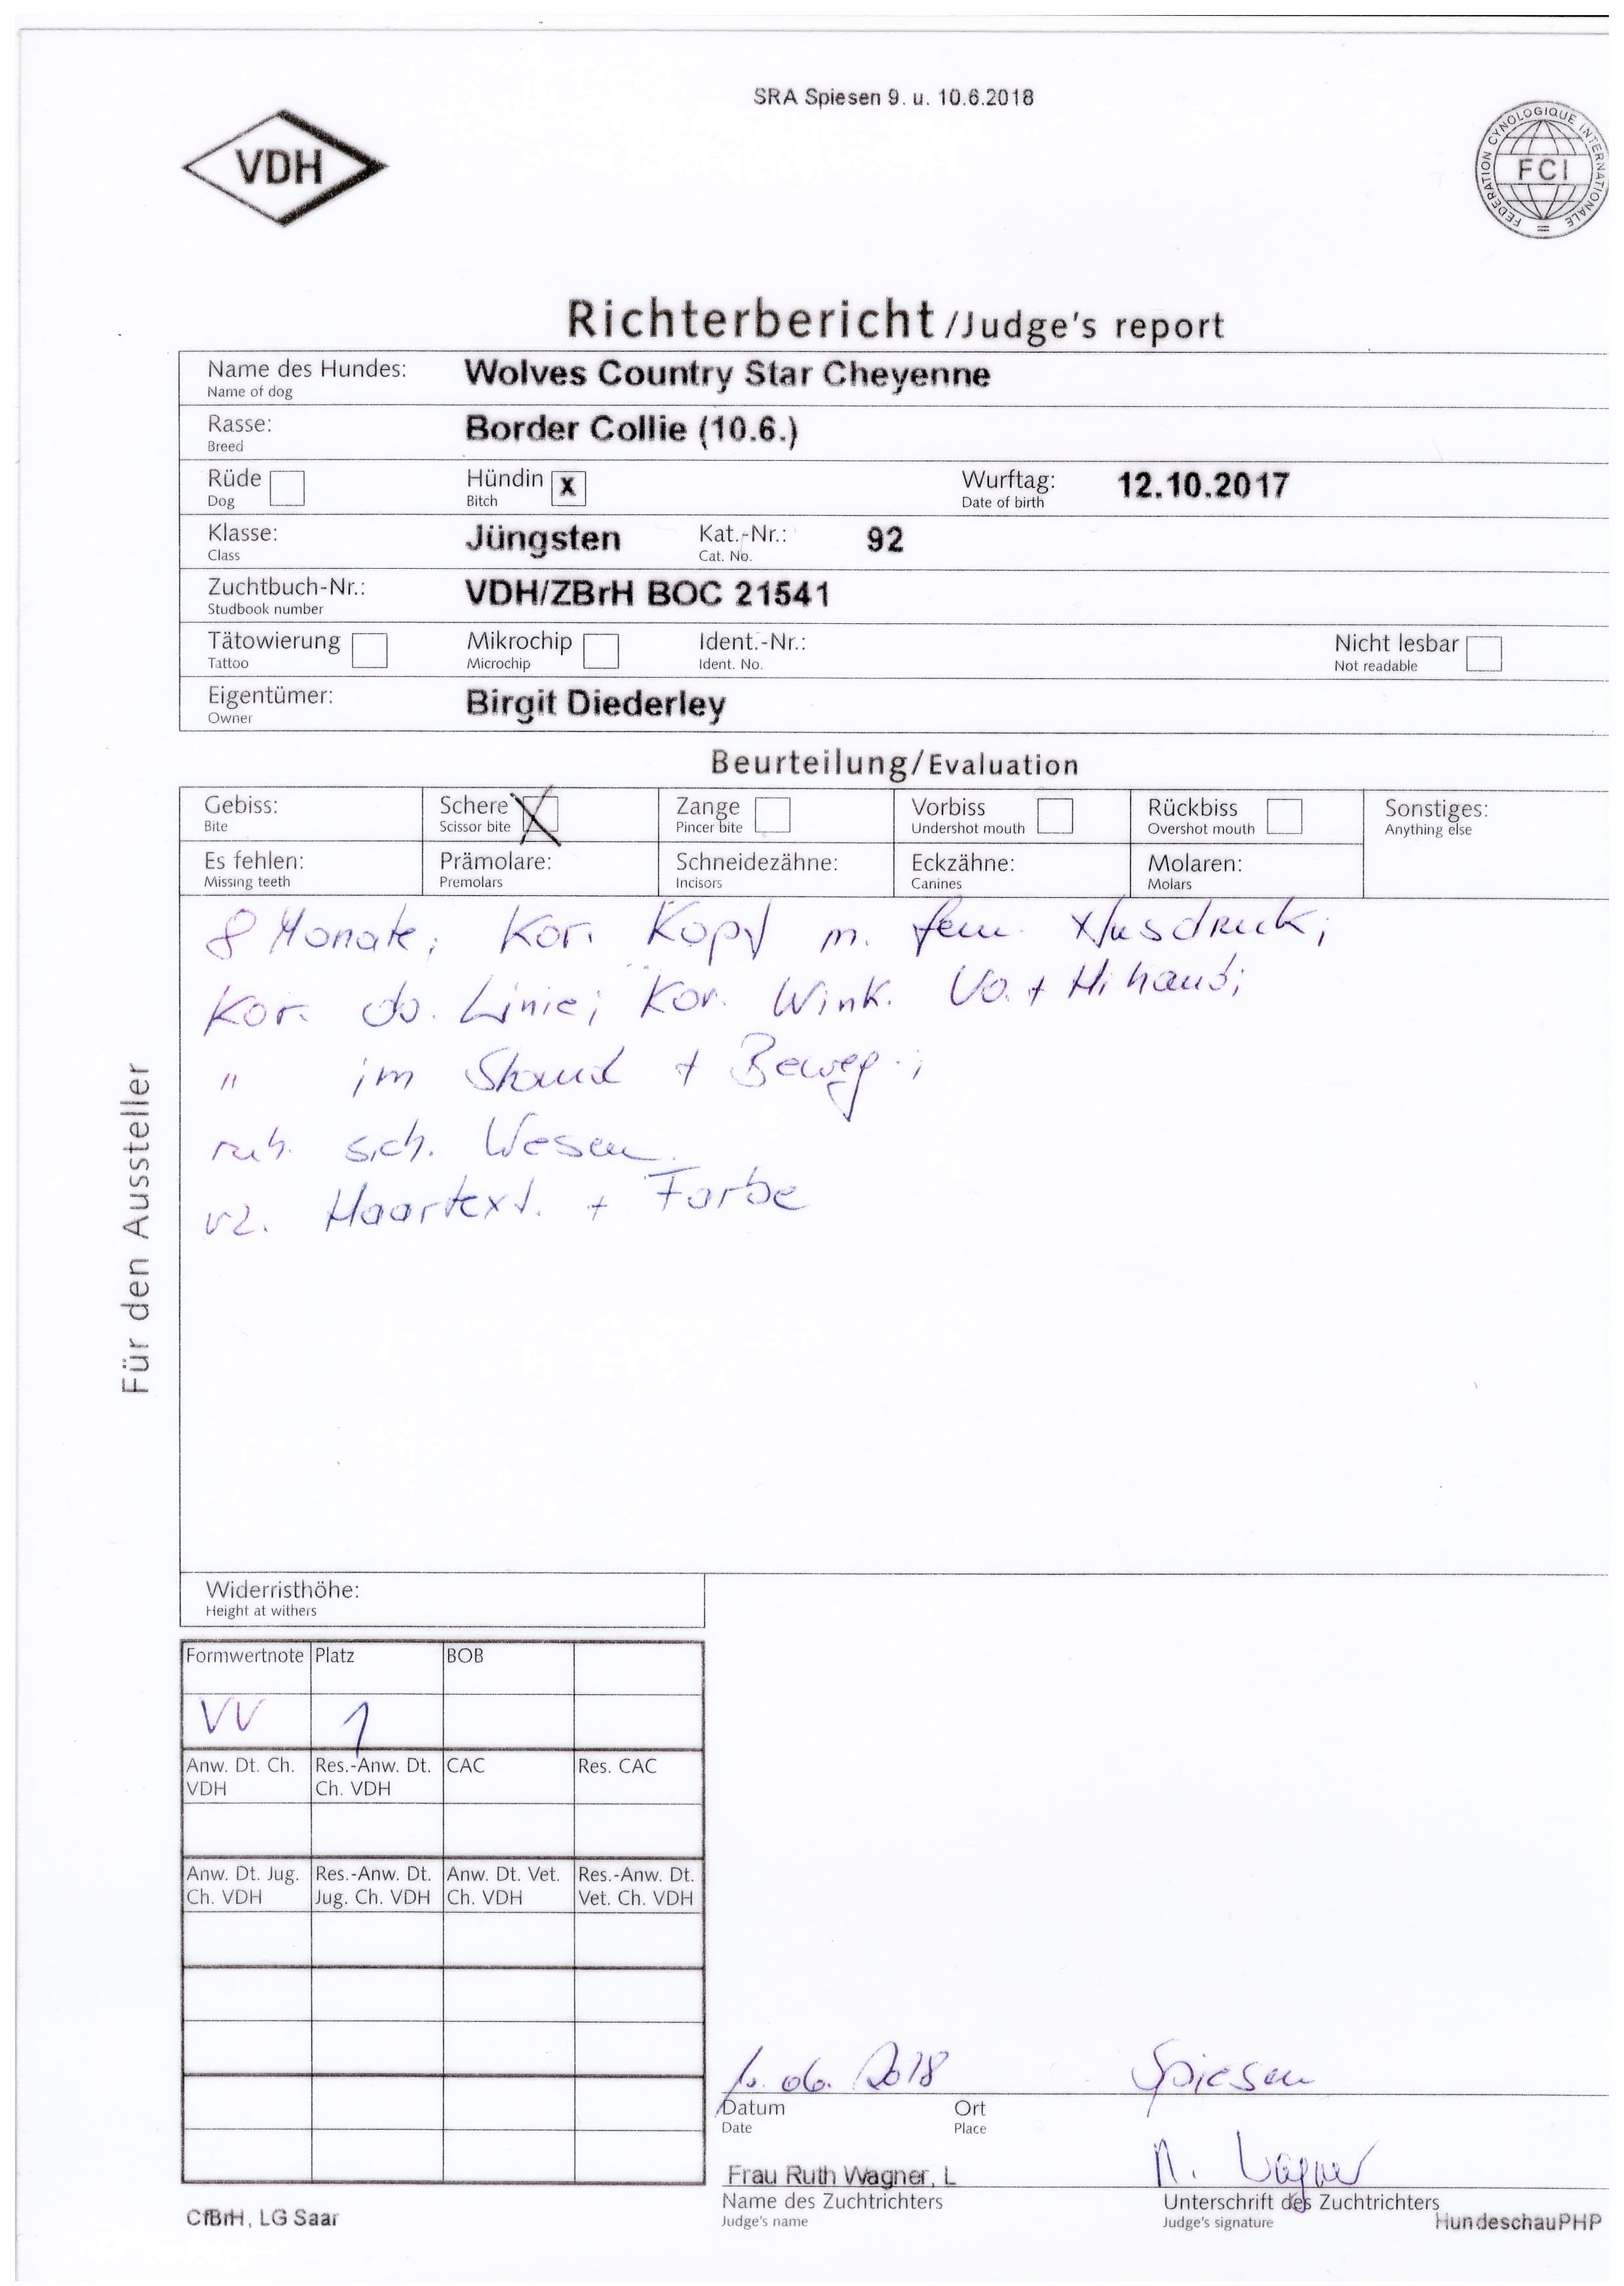 SRA Spiesen 9. u. 10.6.2018
VDH
FEDERATION CYNOLOGIQUE INTERNATIONALE
FCI
Richterbericht/Judge's report
Name des Hundes: Wolves Country Star Cheyenne
Name of dog
Rasse: Border Collie (10.6.)
Breed
Rüde Hündin x Wurftag: 12.10.2017
Dog Bitch Date of birth
Klasse: Jüngsten Kat.-Nr.: 92
Class Cat. No.
Zuchtbuch-Nr.: VDH/ZBrH BOC 21541
Studbook number
Tätowierung Mikrochip Ident.-Nr.: Nicht lesbar
Tattoo Microchip Ident. No. Not readable
Eigentümer: Birgit Diederley
Owner
Beurteilung/Evaluation
Gebiss: Schere X Zange Vorbiss Rückbiss Sonstiges:
Bite Scissor bite Pincer bite Undershot mouth Overshot mouth Anything else
Es fehlen: Prämolare: Schneidezähne: Eckzähne: Molaren:
Missing teeth Premolars Incisors Canines Molars
8 Monate; Kor. Kopf m. fem. Ausdruck;
Kor. ob. Linie; Kor. Wink. Vo. + Hi hand;
" im Stand + Beweg.;
ruh. sich. Wesen
vz. Haartext. + Farbe
Für den Aussteller
Widerristhöhe:
Height at withers
Formwertnote Platz BOB
VV 1
Anw. Dt. Ch. Res.-Anw. Dt. CAC Res. CAC
VDH Ch. VDH
Anw. Dt. Jug. Res.-Anw. Dt. Anw. Dt. Vet. Res.-Anw. Dt.
Ch. VDH Jug. Ch. VDH Ch. VDH Vet. Ch. VDH
10.06.2018 Spiesen
Datum Ort
Date Place
Frau Ruth Wagner, L R. Wagner
Name des Zuchtrichters Unterschrift des Zuchtrichters
Judge's name Judge's signature
CfBrH, LG Saar HundeschauPHP